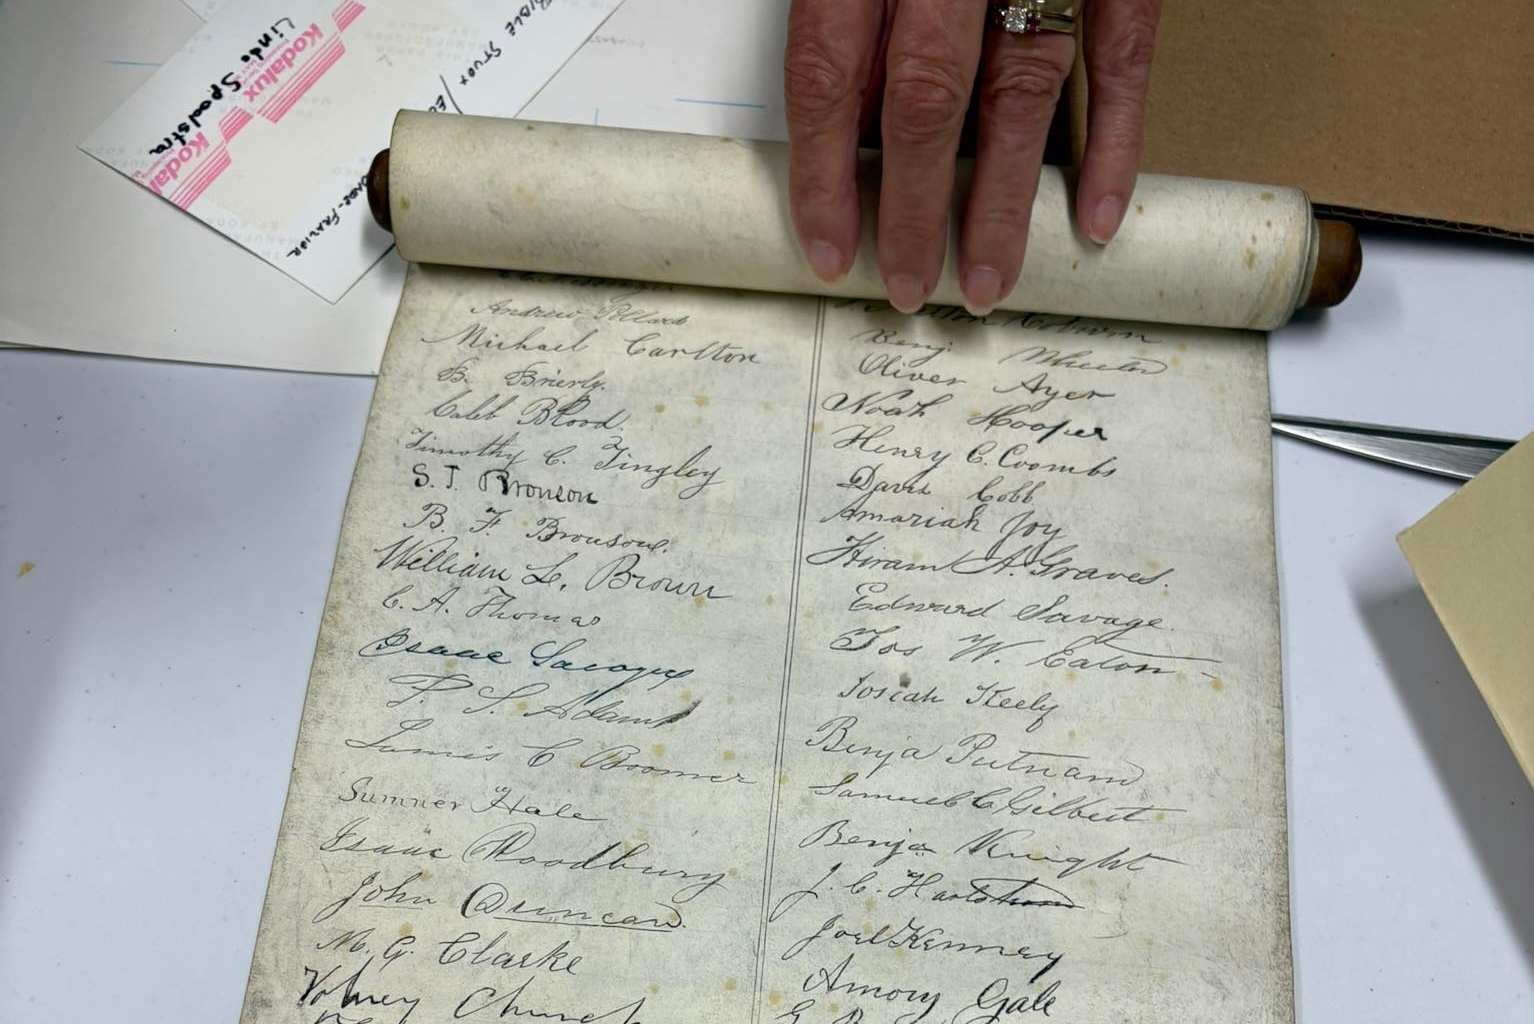 Kodalux
Linda Spoolstra
Kodalux
BIBLE STUDY
Andrew Pollard
Michael Carlton
B. Brierly.
Caleb Blood.
Timothy C. Tingley
S. T. Bronson
B. F. Bronson.
William L. Brown
C. A. Thomas
Isaac Sawyer
P. S. Adams
Lewis C Boomer
Sumner Hale
Isaac Woodbury
John Duncan.
M. G. Clarke
Volney Church
Robinson
Benj. Wheeler
Oliver Ayer
Noah Hooper
Henry C. Coombs
David Cobb
Amariah Joy
Hiram A. Graves.
Edward Savage.
Jos W. Eaton
Josiah Keely
Benja Putnam
Samuel C Gilbert
Benja Knight
J. C. Hartshorn
Joel Kenney
Amory Gale